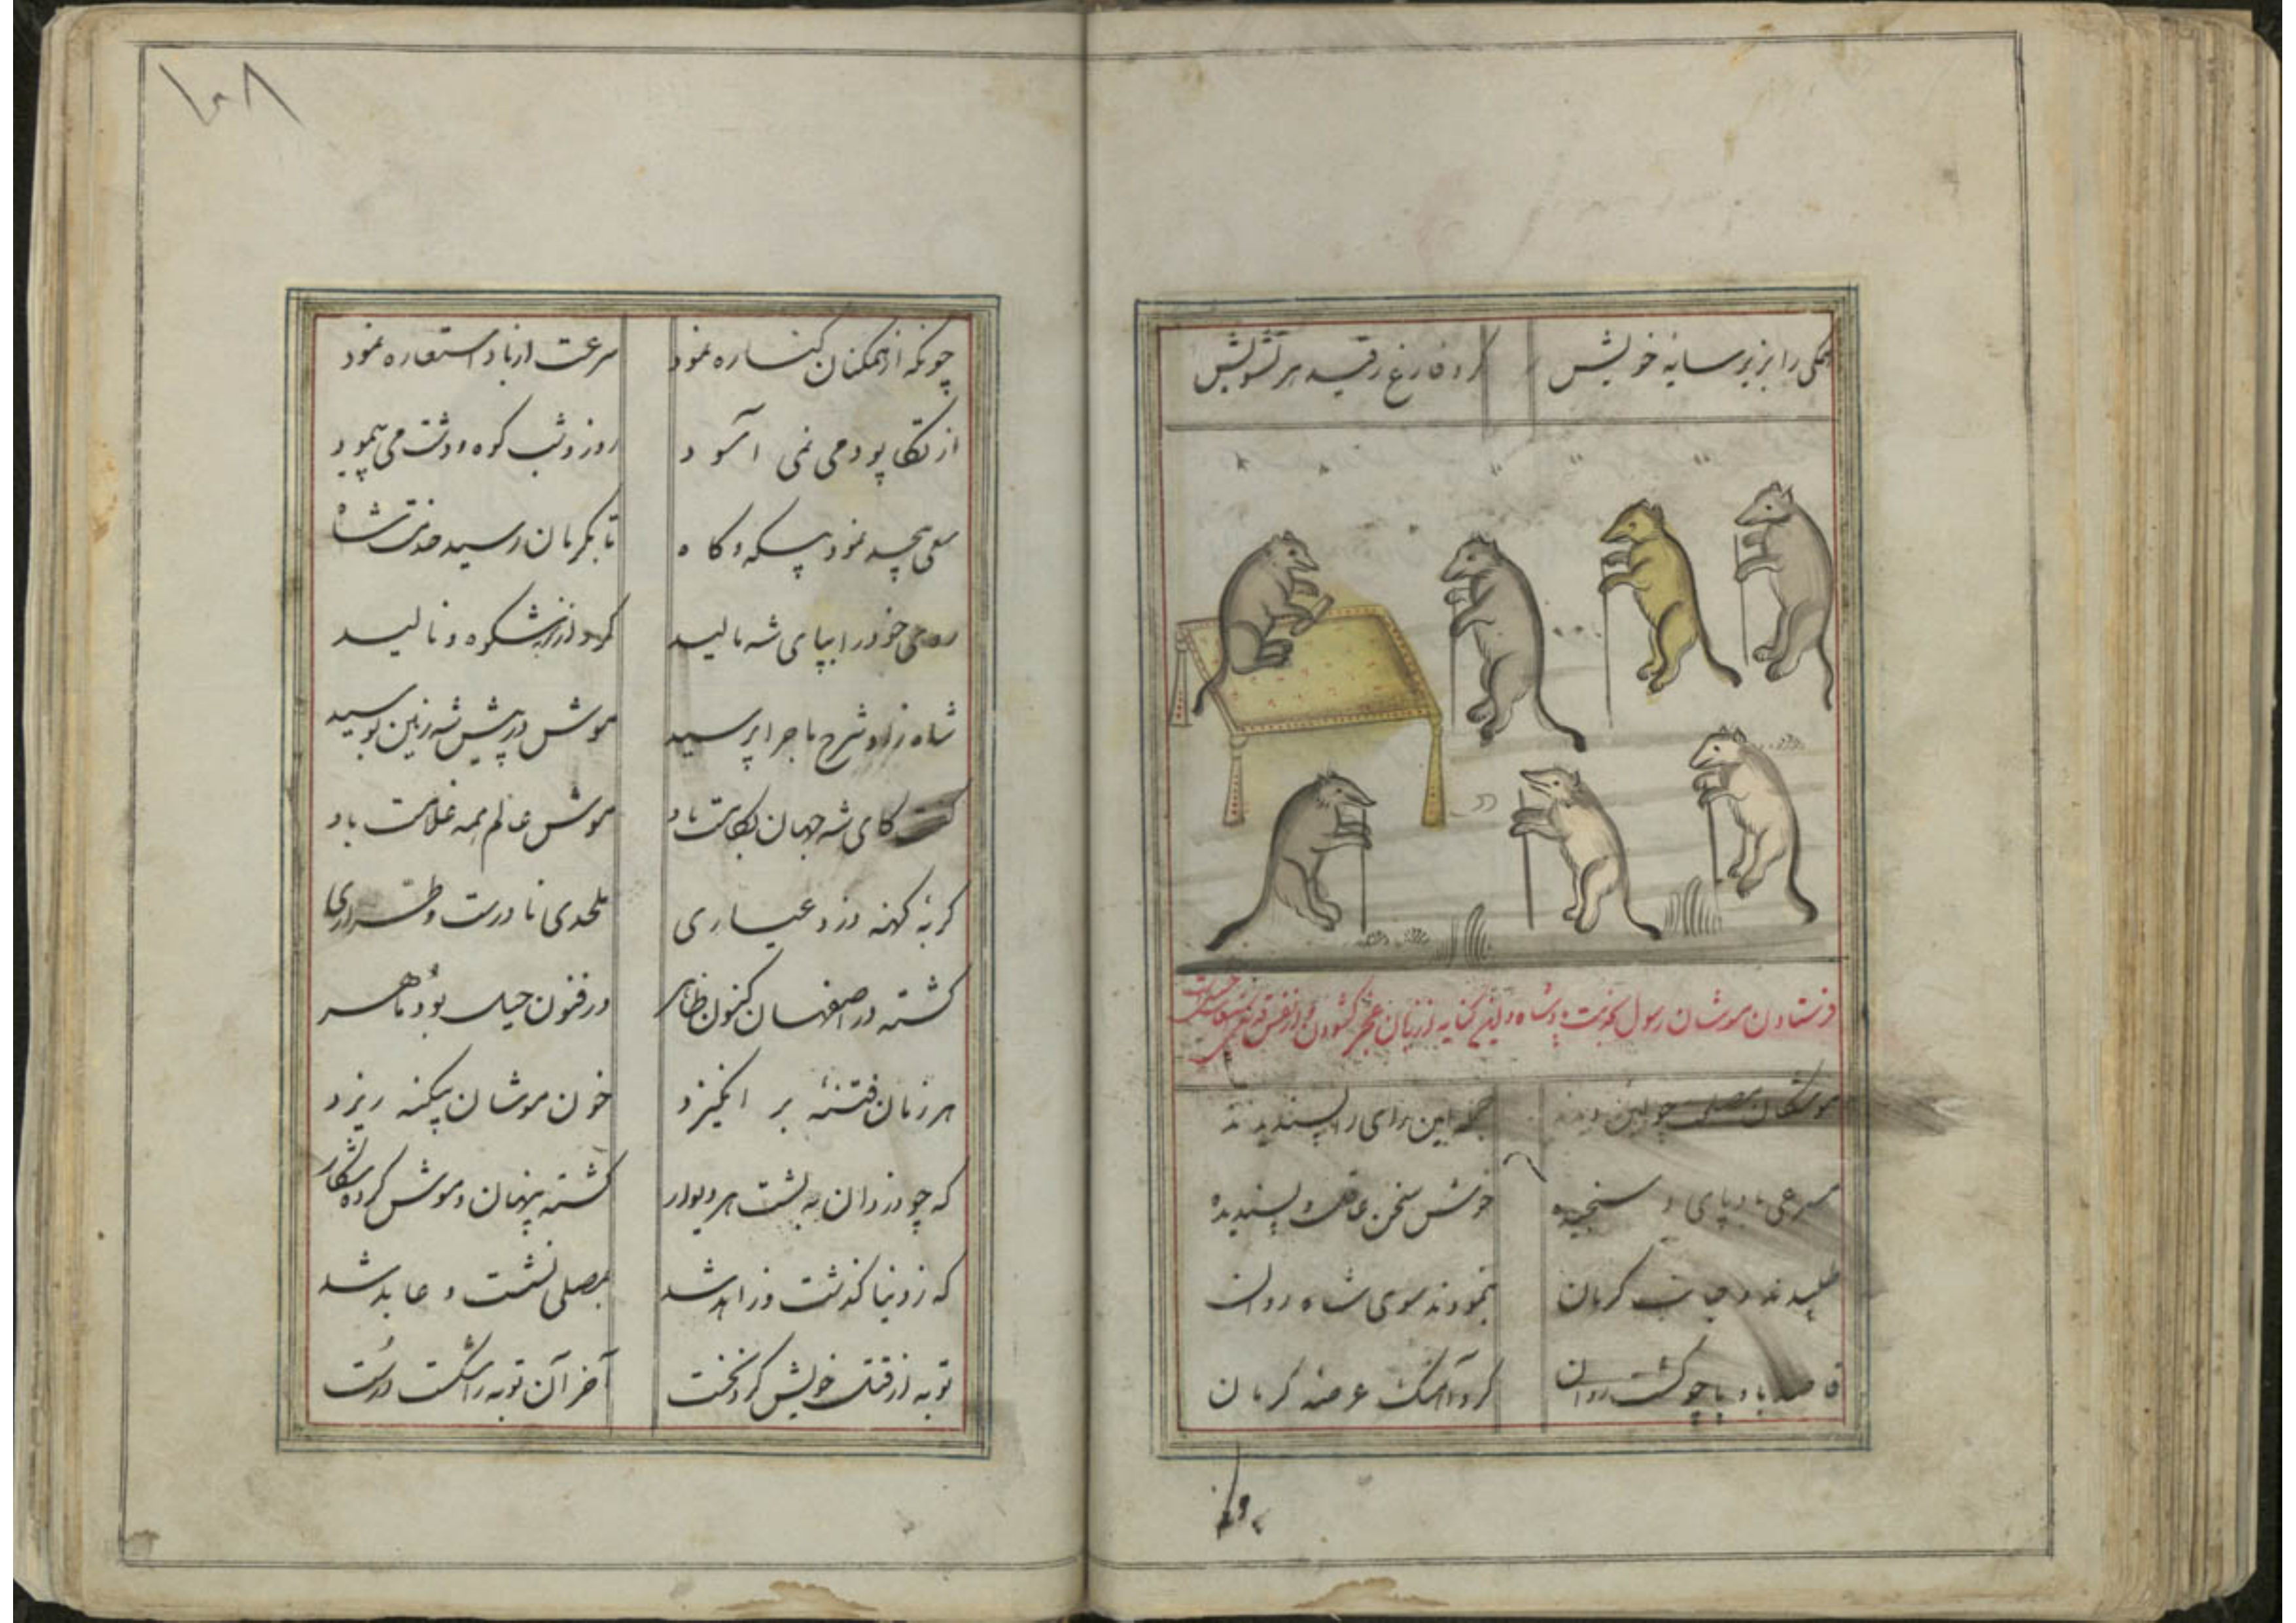 همکی را بزیر سایه خویش
کرده فارغ ز قید هر تشویش
فرستادن موشان رسول بخدمت پادشاه و
موشکان مصلی چو این دیدند
جمله این رای را پسندیدند
مسرعی باد پای و سنجیده
خوش سخن عاقل و پسندیده
طلبیدند و جانب کرمان
نمودند سوی شاه روان
قاصد باد پا چو کشت روان
کرد آهنک عرصه کرمان
۱۰۸
چونکه از همکنان کناره نمود
سرعت از باد استعاره نمود
از تکاپو دمی نمی آسود
روز و شب کوه و دشت می پیمود
سعی بیحد نمود بیکه و کاه
تا بکرمان رسید خدمت شاه
روی خود را بپای شه مالید
کرد از کربه شکوه و نالید
شاه زو شرح ماجرا پرسید
موش در پیش شه زمین بوسید
کفت کای شه جهان بکامت باد
موش عالم همه غلامت باد
کربه کهنه دزد عیاری
ملحدی نادرست و طراری
کشته در اصفهان کنون ظاهر
در فنون حیل بود ماهر
هر زمان فتنه بر انکیزد
خون موشان بیکنه ریزد
که چو دزدان به پشت هر دیوار
کشته پنهان و موش کرده شکار
که ز دنیا کذشت و زاهد شد
بمصلی نشست و عابد شد
توبه از قتل خویش کرد نخست
آخر آن توبه را شکست درست